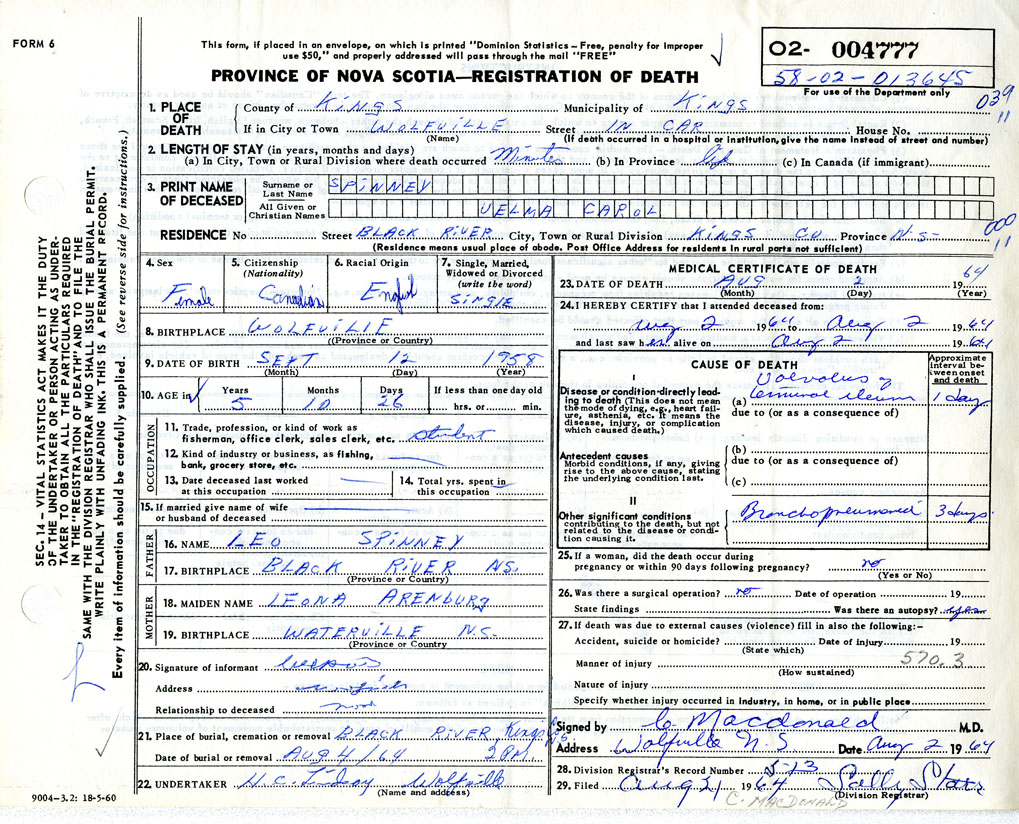 FORM 6
This form, if placed in an envelope, on which is printed "Dominion Statistics – Free, penalty for improper
use $50," and properly addressed will pass through the mail "FREE"
PROVINCE OF NOVA SCOTIA—REGISTRATION OF DEATH
02- 004777
58-02-013645
For use of the Department only
039
11
SEC. 14 – VITAL STATISTICS ACT MAKES IT THE DUTY
OF THE UNDERTAKER OR PERSON ACTING AS UNDER-
TAKER TO OBTAIN ALL THE PARTICULARS REQUIRED
IN THE "REGISTRATION OF DEATH" AND TO FILE THE
SAME WITH THE DIVISION REGISTRAR WHO SHALL ISSUE THE BURIAL PERMIT.
WRITE PLAINLY WITH UNFADING INK. THIS IS A PERMANENT RECORD.
Every item of information should be carefully supplied. (See reverse side for instructions.)
1. PLACE OF DEATH
County of KINGS Municipality of KINGS
If in City or Town WOLFVILLE Street IN CAR House No.
(Name) (If death occurred in a hospital or institution, give name instead of street and number)
2. LENGTH OF STAY (in years, months and days)
(a) In City, Town or Rural Division where death occurred Minutes (b) In Province life (c) In Canada (if immigrant)
3. PRINT NAME OF DECEASED
Surname or Last Name SPINNEY
All Given or Christian Names VELMA CAROL
000
11
RESIDENCE No Street BLACK RIVER City, Town or Rural Division KINGS CO Province N.S.
(Residence means usual place of abode. Post Office Address for residents in rural parts not sufficient)
4. Sex Female
5. Citizenship (Nationality) Canadian
6. Racial Origin English
7. Single, Married, Widowed or Divorced (write the word) SINGLE
8. BIRTHPLACE WOLFVILLE
(Province or Country)
9. DATE OF BIRTH SEPT 12 1958
(Month) (Day) (Year)
10. AGE in Years 5 Months 10 Days 26 If less than one day old hrs. or min.
OCCUPATION
11. Trade, profession, or kind of work as
fisherman, office clerk, sales clerk, etc. student
12. Kind of industry or business, as fishing,
bank, grocery store, etc.
13. Date deceased last worked
at this occupation
14. Total yrs. spent in
this occupation
15. If married give name of wife
or husband of deceased
FATHER
16. NAME LEO SPINNEY
17. BIRTHPLACE BLACK RIVER NS.
(Province or Country)
MOTHER
18. MAIDEN NAME LEONA ARENBURG
19. BIRTHPLACE WATERVILLE N.S.
(Province or Country)
20. Signature of informant
Address
Relationship to deceased
21. Place of burial, cremation or removal BLACK RIVER Kings
Date of burial or removal AUG 4/64 2 PM
22. UNDERTAKER Wolfville
(Name and address)
9004-3.2: 18-5-60
MEDICAL CERTIFICATE OF DEATH
23. DATE OF DEATH AUG 2 1964
(Month) (Day) (Year)
24. I HEREBY CERTIFY that I attended deceased from:
Aug 2 1964 to Aug 2 1964
and last saw her alive on Aug 2 1964
CAUSE OF DEATH
Approximate interval between onset and death
I
Disease or condition directly lead-
ing to death (This does not mean
the mode of dying, e.g., heart fail-
ure, asthenia, etc. It means the
disease, injury, or complication
which caused death.)
Volvolus of
(a) terminal ileum 1 day
due to (or as a consequence of)
Antecedent causes
Morbid conditions, if any, giving
rise to the above cause, stating
the underlying condition last.
(b)
due to (or as a consequence of)
(c)
II
Other significant conditions
contributing to the death, but not
related to the disease or condi-
tion causing it.
Bronchopneumonia 3 days
25. If a woman, did the death occur during
pregnancy or within 90 days following pregnancy? no
(Yes or No)
26. Was there a surgical operation? no Date of operation 19
State findings Was there an autopsy?
27. If death was due to external causes (violence) fill in also the following:–
Accident, suicide or homicide? Date of injury 19
(State which)
570.3
Manner of injury
(How sustained)
Nature of injury
Specify whether injury occurred in industry, in home, or in public place
Signed by C. Macdonald M.D.
Address Wolfville N.S Date Aug 2 1964
28. Division Registrar's Record Number
29. Filed Aug 1964
(Division Registrar)
C. MACDONALD